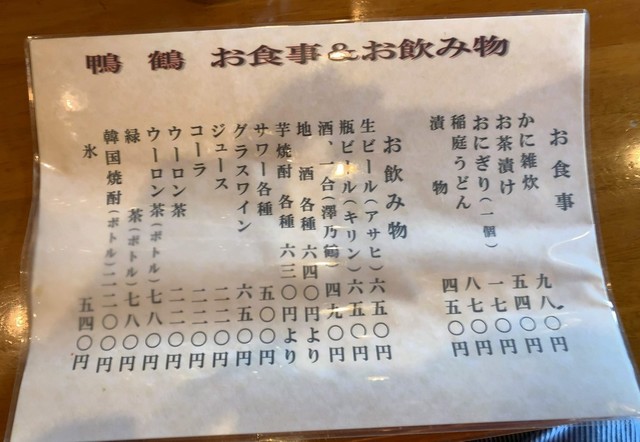 鴨 鶴 お食事&お飲み物
お食事
かに雑炊 九八〇円
お茶漬け 五四〇円
おにぎり(一個) 一七〇円
稲庭うどん 八七〇円
漬 物 四五〇円
お飲み物
生ビール(アサヒ)六五〇円
瓶ビール(キリン)六五〇円
酒、一合(澤乃鶴)四九〇円
地 酒 各種 六四〇円より
芋焼酎 各種 六三〇円より
サワー各種 五〇〇円
グラスワイン 六五〇円
ジュース 二二〇円
コーラ 二二〇円
ウーロン茶 二二〇円
ウーロン茶(ボトル)七八〇円
緑 茶(ボトル)七八〇円
韓国焼酎(ボトル)二二〇〇円
氷 五四〇円